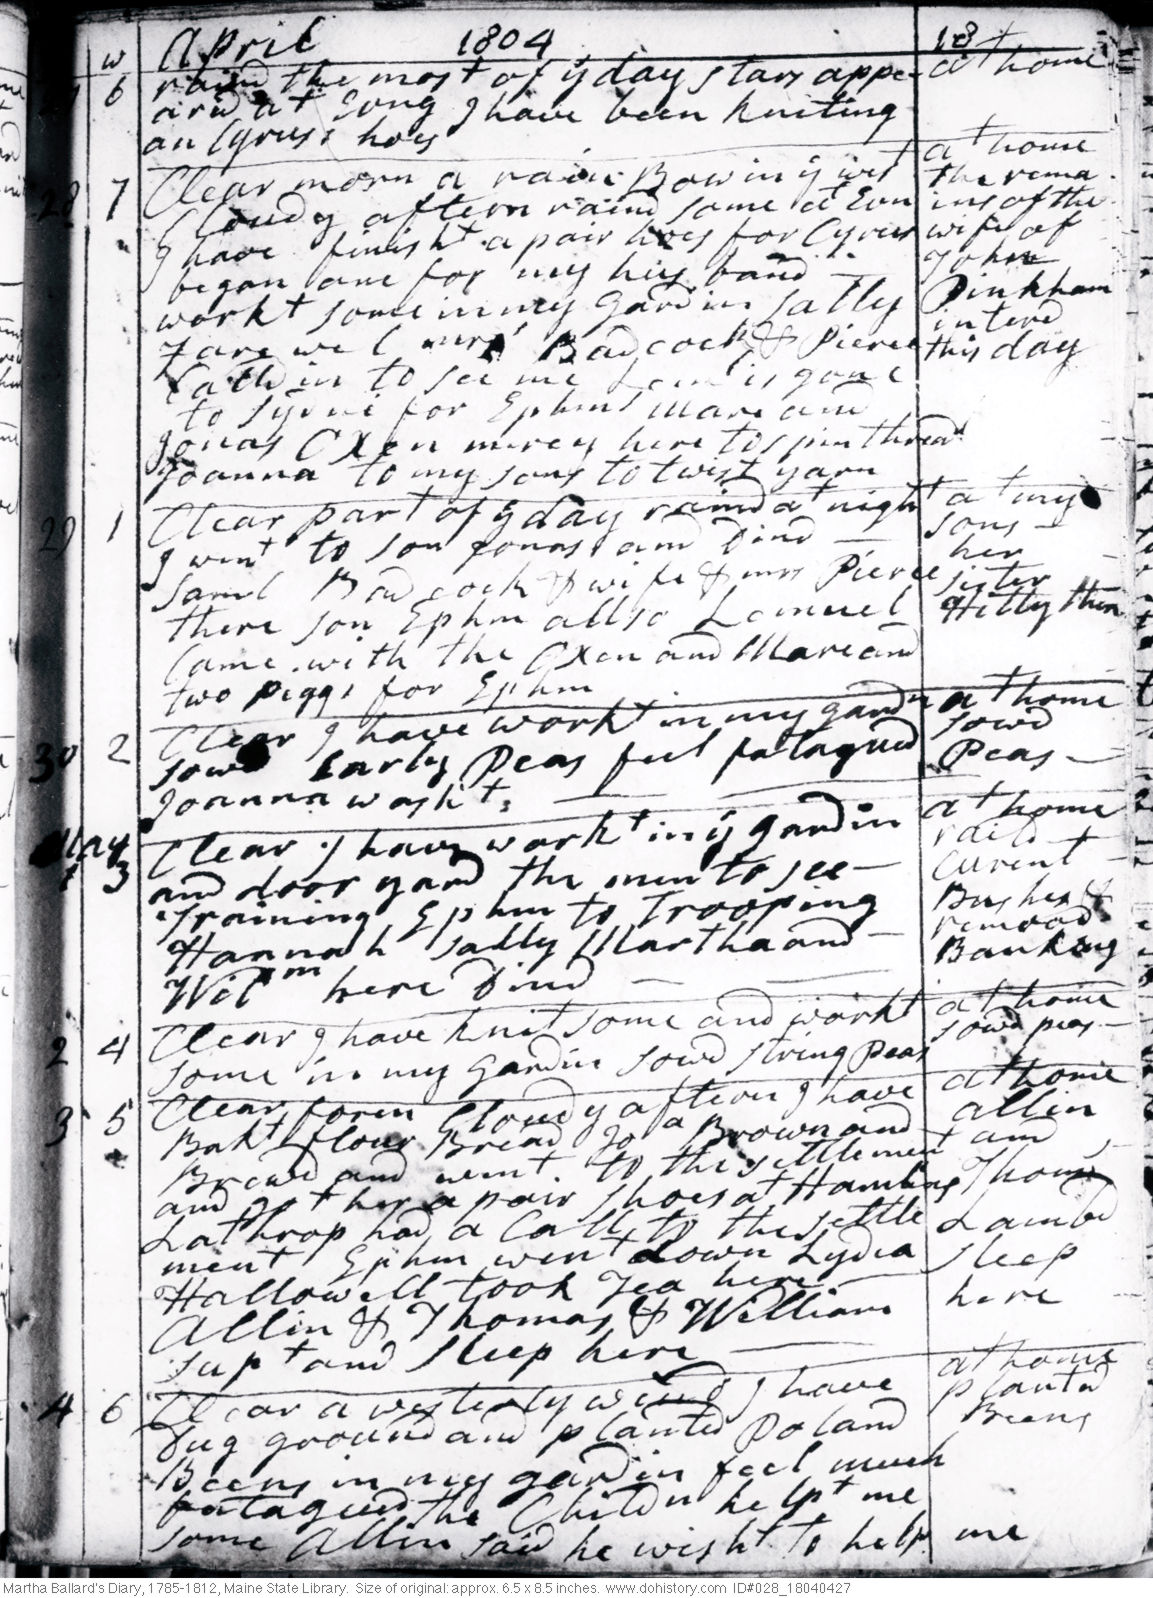 w April 1804 18
27 6 raind the most of ÿ day stars appe- at home
ard at Eving I have been kniting
on Cyruss hoes
28 7 Clear morn a rain Bow in ÿ wist at home
Cloudy aftern raind some at Evn the rema
I have finisht a pair hoes for Cyrus ins of the
began one for my husband wife of
workt some in my Gardin Sally John
Farewel mrs Badcock & Pierce Pinkham
Calld in to see me Leml is gone interd
to Sydni for Ephms Mare and this day
Jonas Oxen mercy here to spin thread
Joanna to my sons to twist yarn
29 1 Clear part of ÿ day raind at night at my
I went to son Jonas and Dind sons
Saml Badcock & wife & mrs Pierce her
there son Ephm allso Lemuel sister
Came with the Oxen and Mare and Hitty then
two piggs for Ephm
30 2 Clear I have workt in my gardn at home
sowd Early Peas feel fatagued sowd
Joanna washt Peas
May
1 3 Clear I have workt in ÿ gardin at home
and door yard the men to see raild
Training Ephm to Trooping Curent
Hannah Sally Martha and Bushes &
Wilm here Dind remood
Banking
2 4 Clear I have knit some and workt at home
some in my Gardin sowd string Peas sowd peas
3 5 Clear foren Cloudy aftern I have at home
Bakt flour Bread Jo a Brown and allin
Brewd and went to the settlement and
and got her a pair shoes at Hamlins Thoms
Lathrop had a Call to the settle Lambd
ment Ephm went down Lydia sleep
Hallowell took Tea here here
Allin & Thomas & William
supt and sleep here
4 6 Clear a westerly wind I have at home
Dug ground and planted Poland plantd
Beens in my gardin feel much Beens
fatagued the Childn helpt me
some Allin said he wisht to help me
Martha Ballard's Diary, 1785-1812, Maine State Library. Size of original: approx. 6.5 x 8.5 inches. www.dohistory.com ID#028_18040427